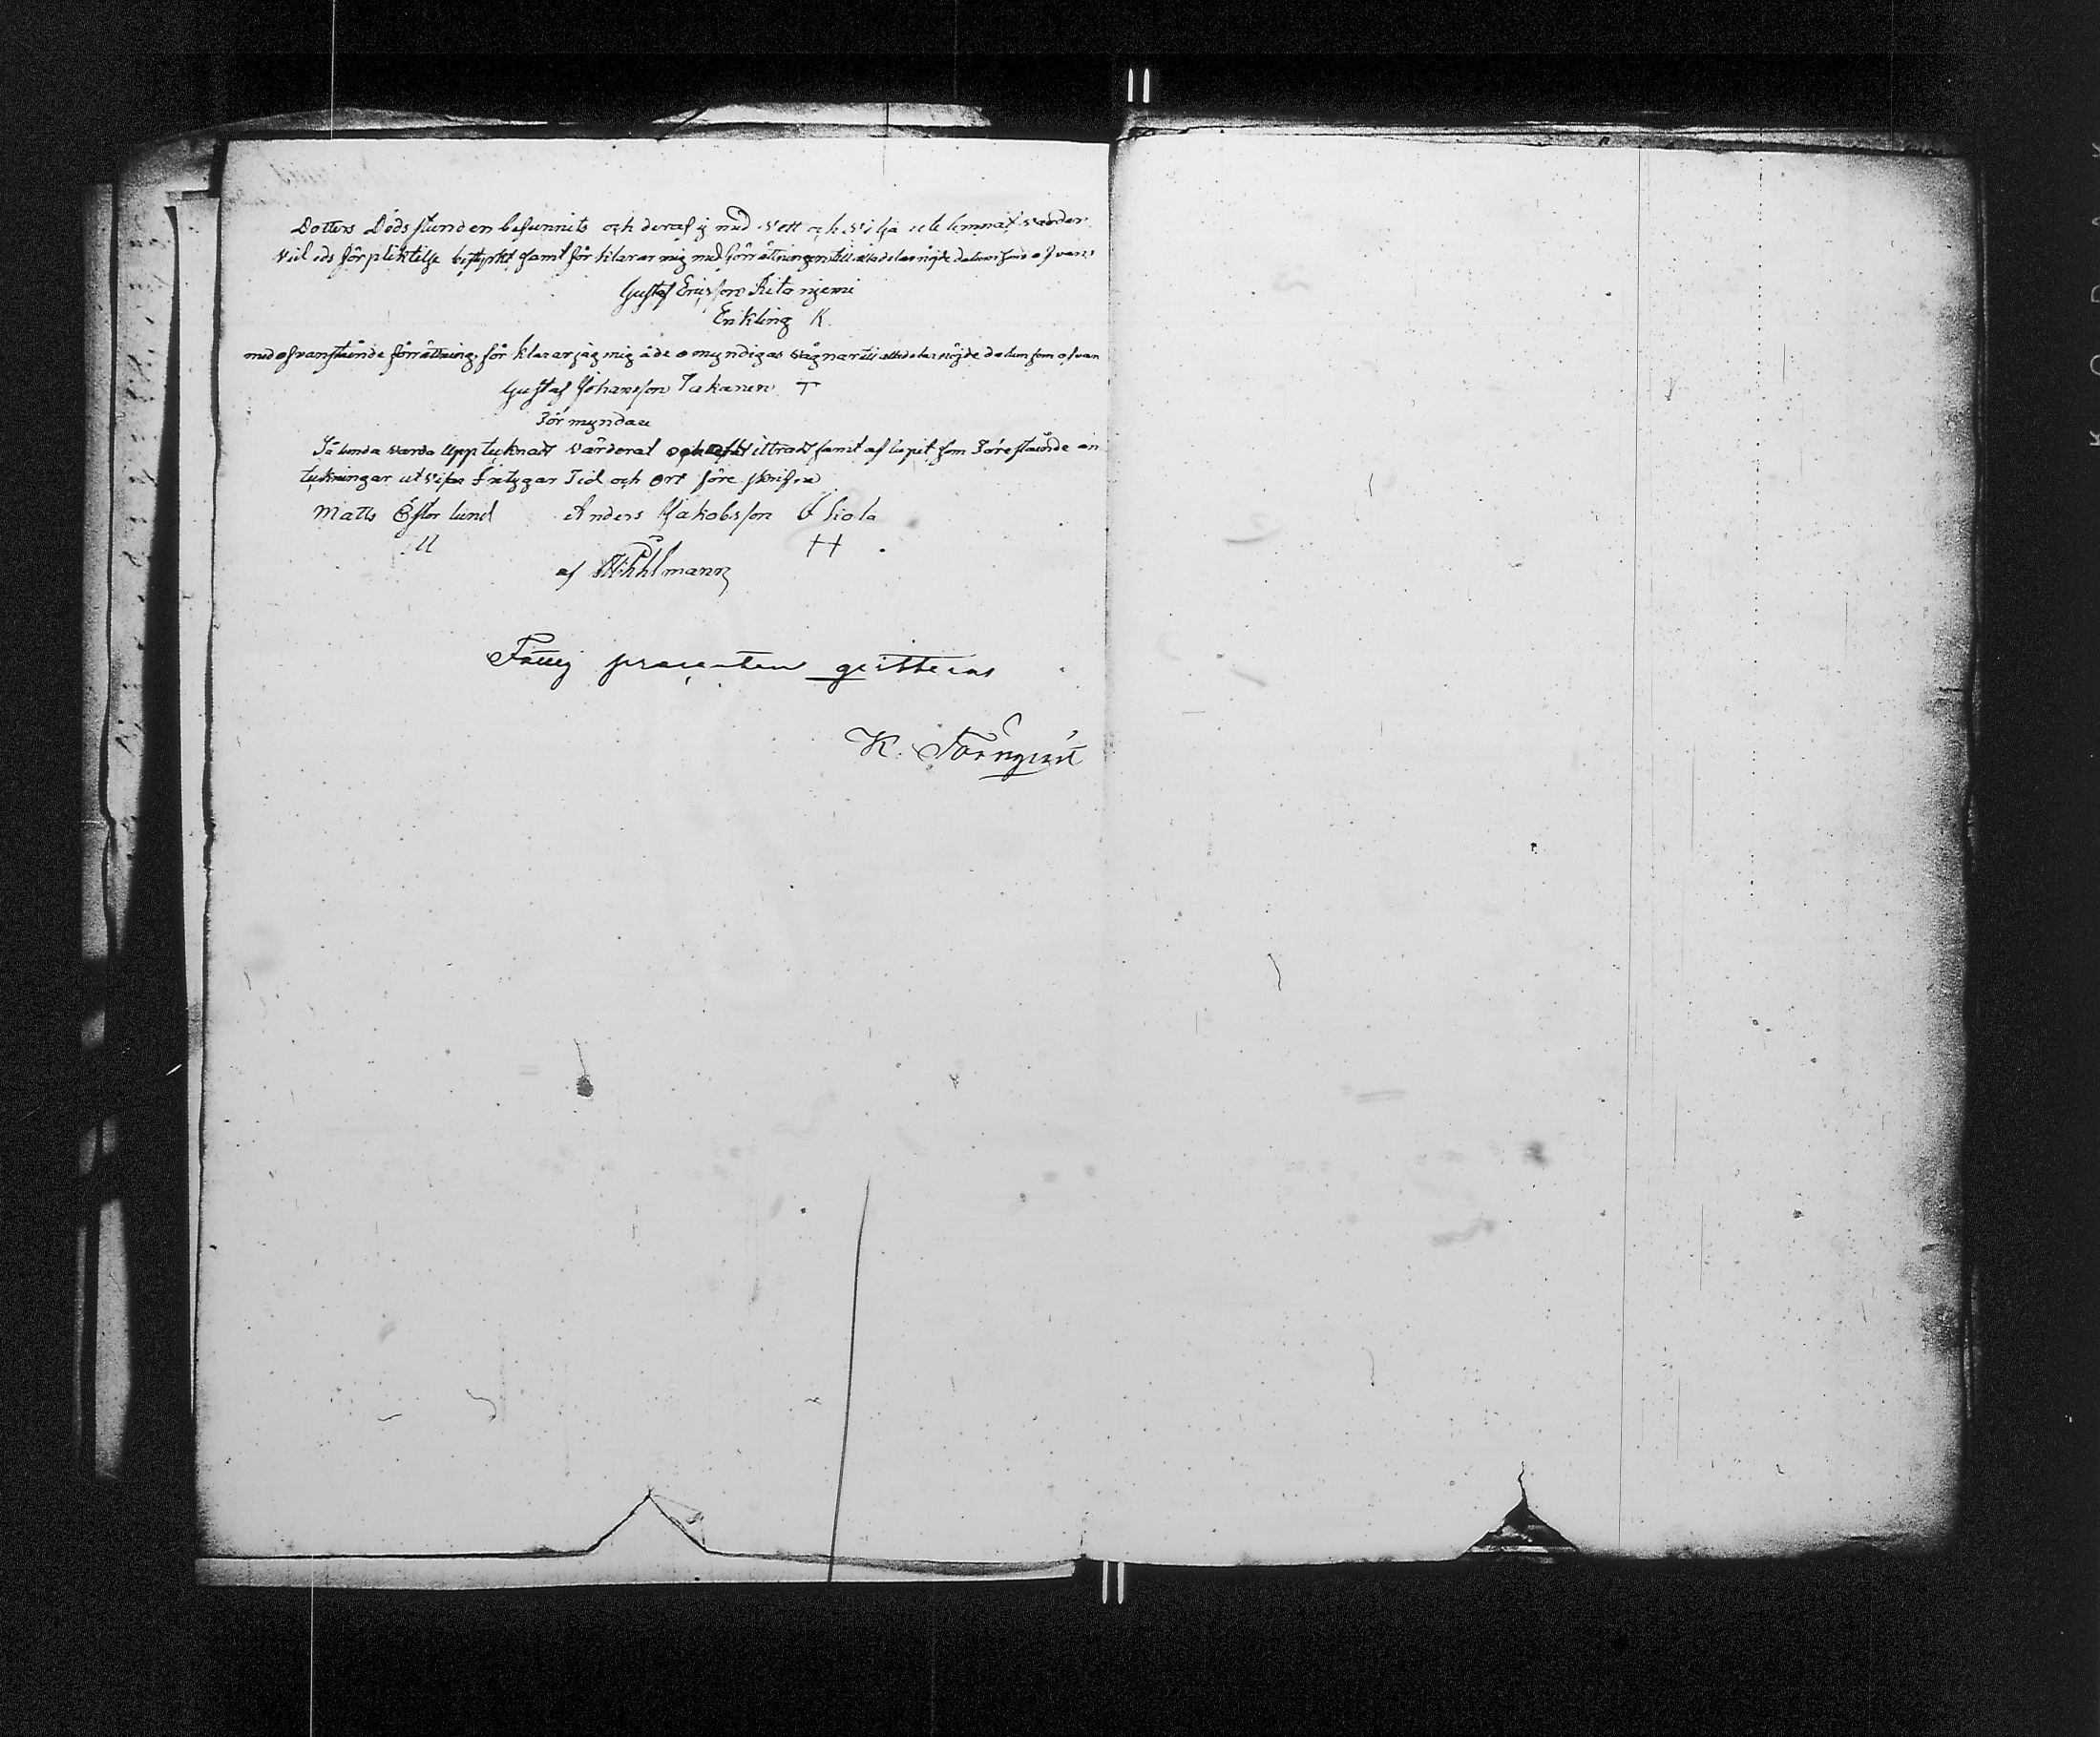 Dotters Dödsstunden befunnits och deraf ej med Vett och Vilja ute lemnat varder
Vid eds förpliktelse bestyrkt samt för klarar mig med förrättningen till alla delar nöjde datum som ofvan
Gustaf Ericsson Ritaniemi
Enkling K.
med ofvanstående förrättning, för klarar jag mig å de omyndigas vägnar till alla delar nöjde datum som ofvan
Gustaf Johansson Takanen T
Förmyndare
Så lunda varda Upp tecknadt Värderat och samt af lupit som Förestående an
teckningar utvisar Intygar Tid och Ort före skrifne
Matts Österlund Anders Jakobsson Ohiola
U H
af Wihlmann
Fattig procenten qvitteras
K. Törnqvist
KODAK